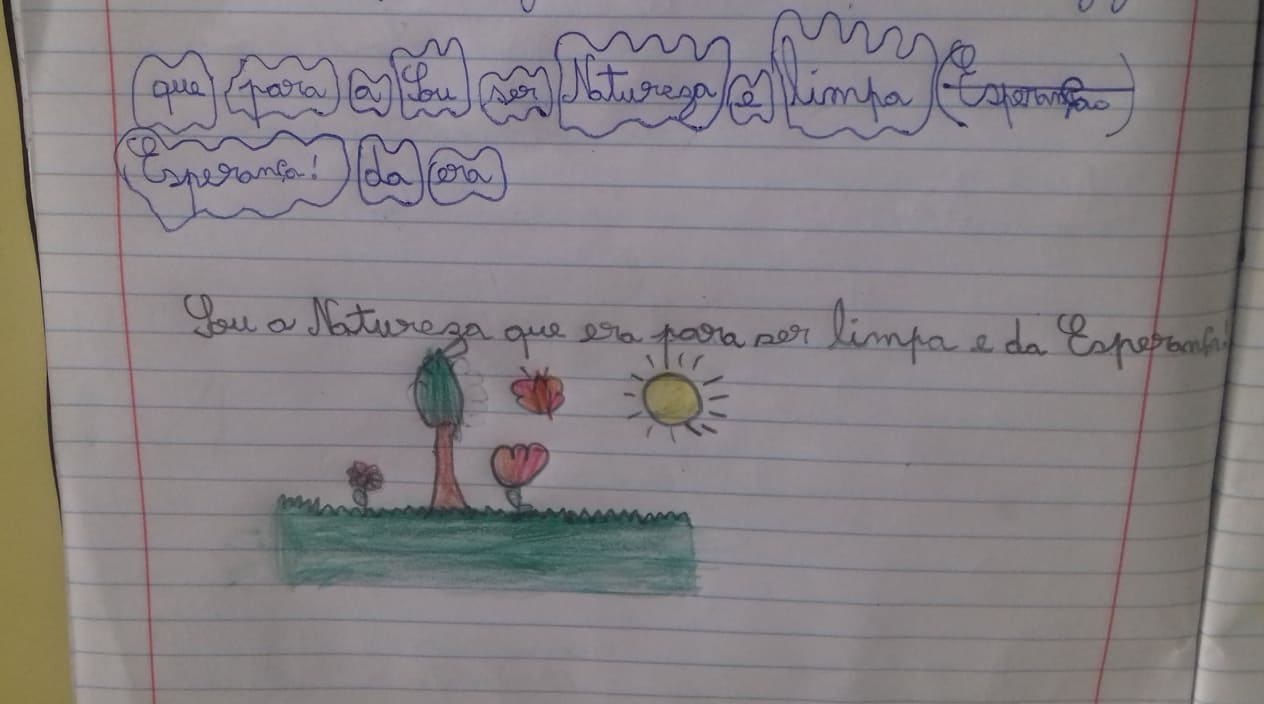 que para a Sou ser Natureza e limpa Esperanção
Esperança! da era
Sou a Natureza que era para ser limpa e da Esperança!